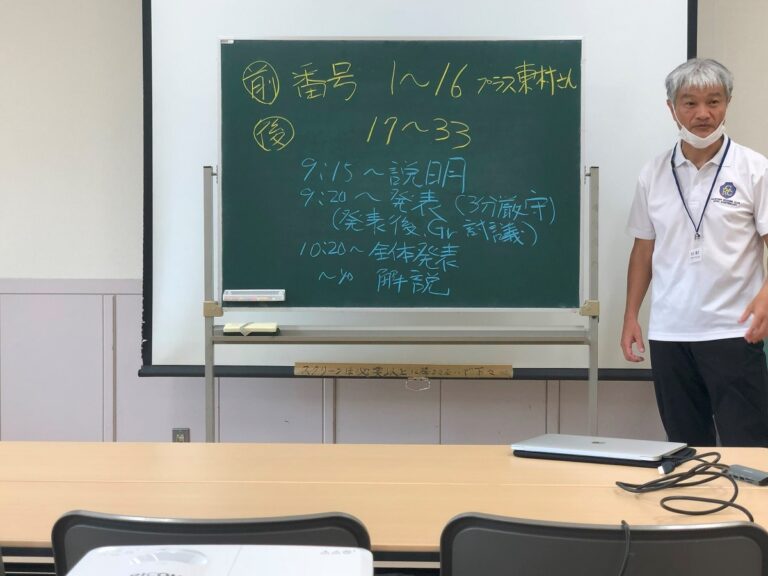 前 番号 1〜16 プラス東村さん
後 17〜33
9:15〜説明
9:20〜発表(3分厳守)
(発表後、Gr 討議)
10:20〜全体発表
解説
スクリーンは必要以上に
RICOH